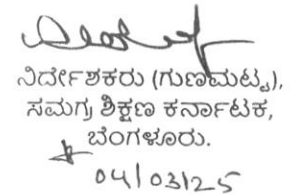 ನಿರ್ದೇಶಕರು (ಗುಣಮಟ್ಟ),
ಸಮಗ್ರ ಶಿಕ್ಷಣ ಕರ್ನಾಟಕ,
ಬೆಂಗಳೂರು.
04/03/25